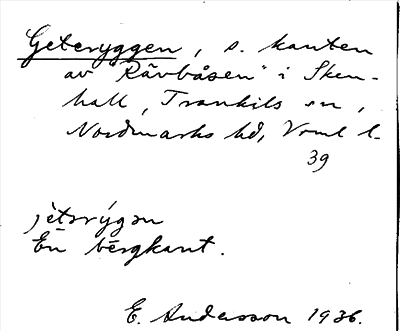 Geteryggen, s. kanten
av "Rävbåsen" i Sken-
hall, Trankils sn,
Nordmarks hd, Vrml l.
39
jètərýgən
En bergkant.
E. Andersson 1936.